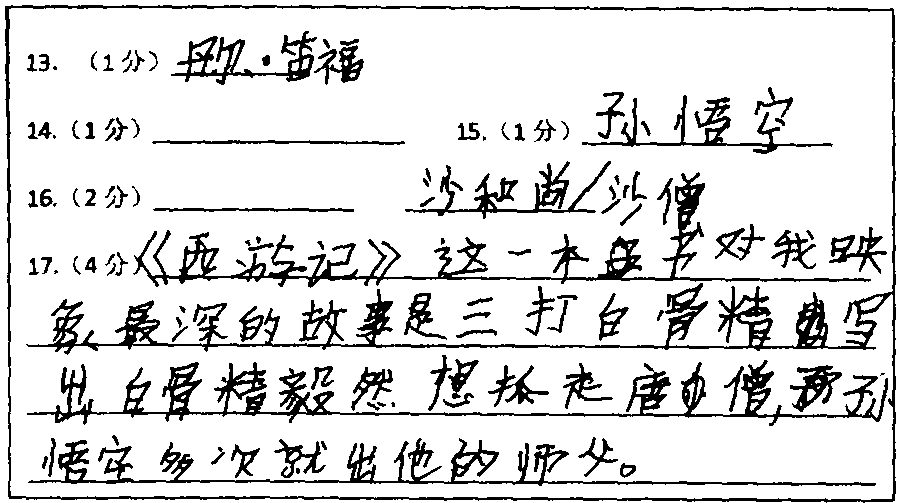 13. （1分）丹尔·笛福
14.（1分） 15.（1分）孙悟空
16.（2分） 沙和尚/沙僧
17.（4分）《西游记》这一本书对我映
象最深的故事是三打白骨精写
出白骨精毅然想抓走唐僧,而孙
悟空多次就出他的师父。